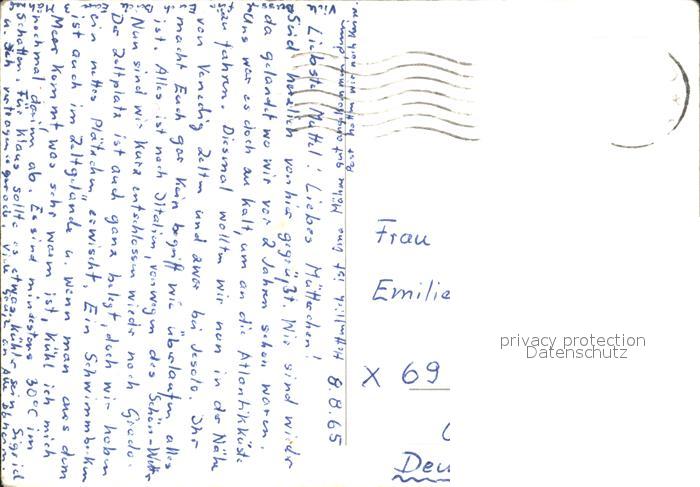 Mittwoch 8.8.65
Liebste Muttel! Liebes Mütterchen!
Seid herzlich von hier gegrüßt. Wir sind wieder
da gelandet wo wir vor 2 Jahren schon waren.
Uns war es doch zu kalt, um an die Atlantikküste
zu fahren. Diesmal wollten wir nun in der Nähe
von Venedig Zelten und zwar bei Jesolo. Ihr
macht Euch gar kein begriff wie überlaufen alles
ist. Alles ist nach Italien, von wegen des Schön-Wetter
Nun sind wir kurz entschlossen wieder nach Grado.
Der Zeltplatz ist auch ganz belegt, doch wir haben
ein nettes Plätzchen erwischt. Ein Schwimmbecken
ist auch im Zeltgelände u. wenn man aus dem
Meer kommt was sehr warm ist, kühl ich mich
nochmal darin ab. Es sind mindestens 30°C im
Schatten. Für Klaus sollte es etwas kühler sein.
u. Ich
Frau
Emilie
X 69
Deu
privacy protection
Datenschutz